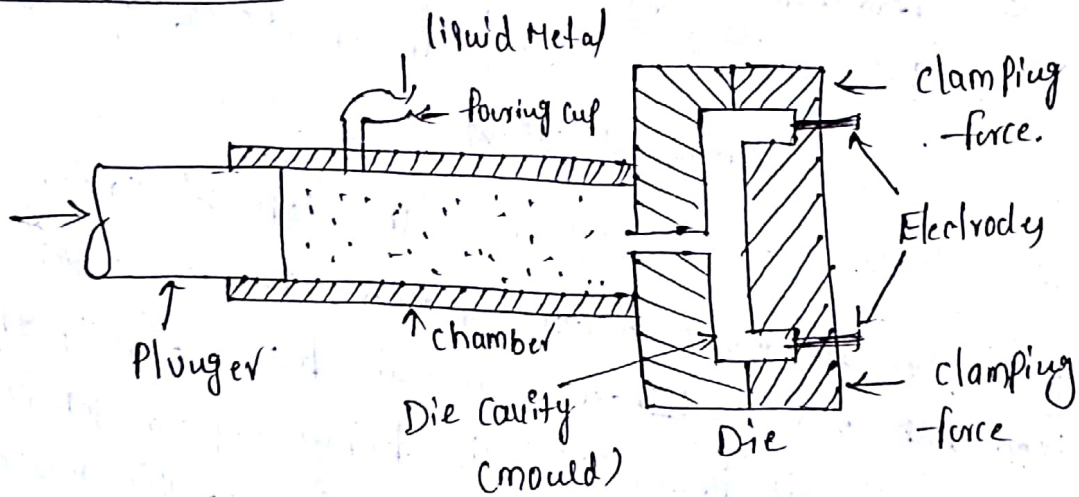 liquid Metal
Pouring cup
clamping
force.
Electrodes
Plunger
chamber
Die Cavity
(mould)
Die
clamping
force